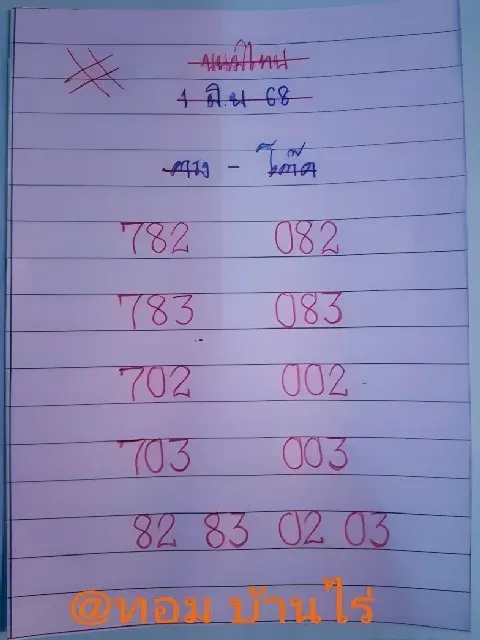 แม่ไทน
1 มิ.ย 68
ตรง - โต๊ด
782 082
783 083
702 002
703 003
82 83 02 03
@ทอม บ้านไร่